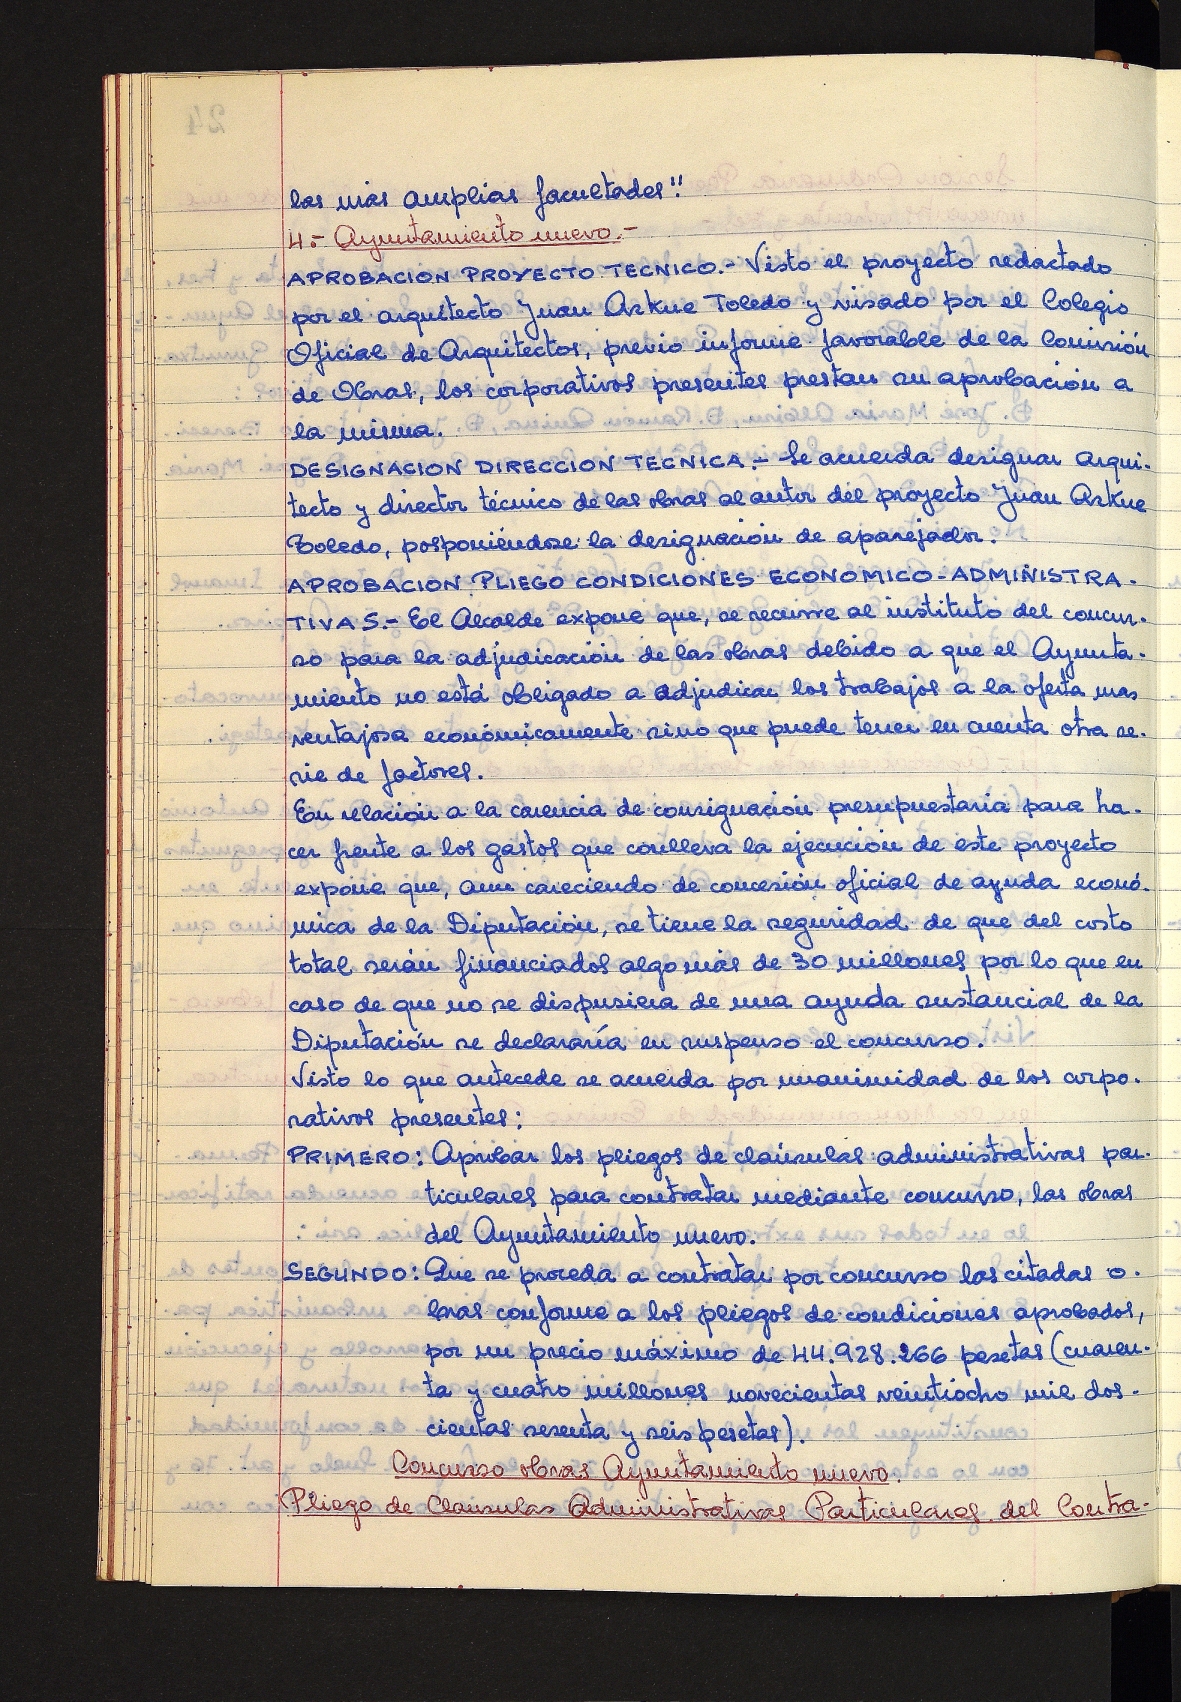 las más amplias facultades".
4.- Ayuntamiento nuevo.-
APROBACION PROYECTO TECNICO.- Visto el proyecto redactado
por el arquitecto Juan Azkue Toledo y visado por el Colegio
Oficial de Arquitectos, previo informe favorable de la Comisión
de Obras, los corporativos presentes prestan su aprobación a
la misma.
DESIGNACION DIRECCION TECNICA.- Se acuerda designar arqui-
tecto y director técnico de las obras al autor del proyecto Juan Azkue
Toledo, posponiéndose la designación de aparejador.
APROBACION PLIEGO CONDICIONES ECONOMICO-ADMINISTRA-
TIVAS.- El Alcalde expone que, se recurre al instituto del concur-
so para la adjudicación de las obras debido a que el Ayunta-
miento no está obligado a adjudicar los trabajos a la oferta mas
ventajosa económicamente sino que puede tener en cuenta otra se-
rie de factores.
En relación a la carencia de consignación presupuestaria para ha-
cer frente a los gastos que conlleva la ejecución de este proyecto
expone que, aun careciendo de concesión oficial de ayuda econó-
mica de la Diputación, se tiene la seguridad de que del costo
total serán financiados algo más de 30 millones por lo que en
caso de que no se dispusiera de una ayuda sustancial de la
Diputación se declararía en suspenso el concurso.
Visto lo que antecede se acuerda por unanimidad de los corpo-
rativos presentes:
PRIMERO: Aprobar los pliegos de claúsulas administrativas par-
ticulares para contratar mediante concurso, las obras
del Ayuntamiento nuevo.
SEGUNDO: Que se proceda a contratar por concurso las citadas o-
bras conforme a los pliegos de condiciones aprobados,
por un precio máximo de 44.928.266 pesetas (cuaren-
ta y cuatro millones novecientas veintiocho mil dos-
cientas sesenta y seis pesetas).
Concurso obras Ayuntamiento nuevo.
Pliego de Claúsulas Administrativas Particulares del Contra-